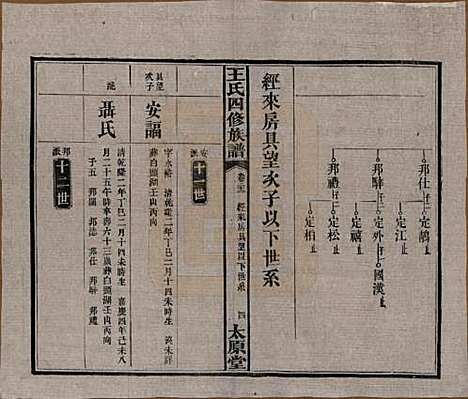 邦仕
定鵠
定江
邦驊
定外
國漢
定禧
邦禮
定松
定柏
經來房具望次子以下世系
王氏四修族譜
卷
經來房具望以下世系
四
太原堂
安派
十一世
具望次子
安福
字永裕 清乾隆二年丁巳二月十四未時生 歿未詳
葬白頭湖壬山丙向
配
聶氏
清乾隆二年丁巳二月十四未時生 嘉慶四年己未八
月二十五午時歿壽六十三歲葬白頭湖壬山丙向
子五 邦 邦 邦仕 邦驊 邦禮
邦派
十二世